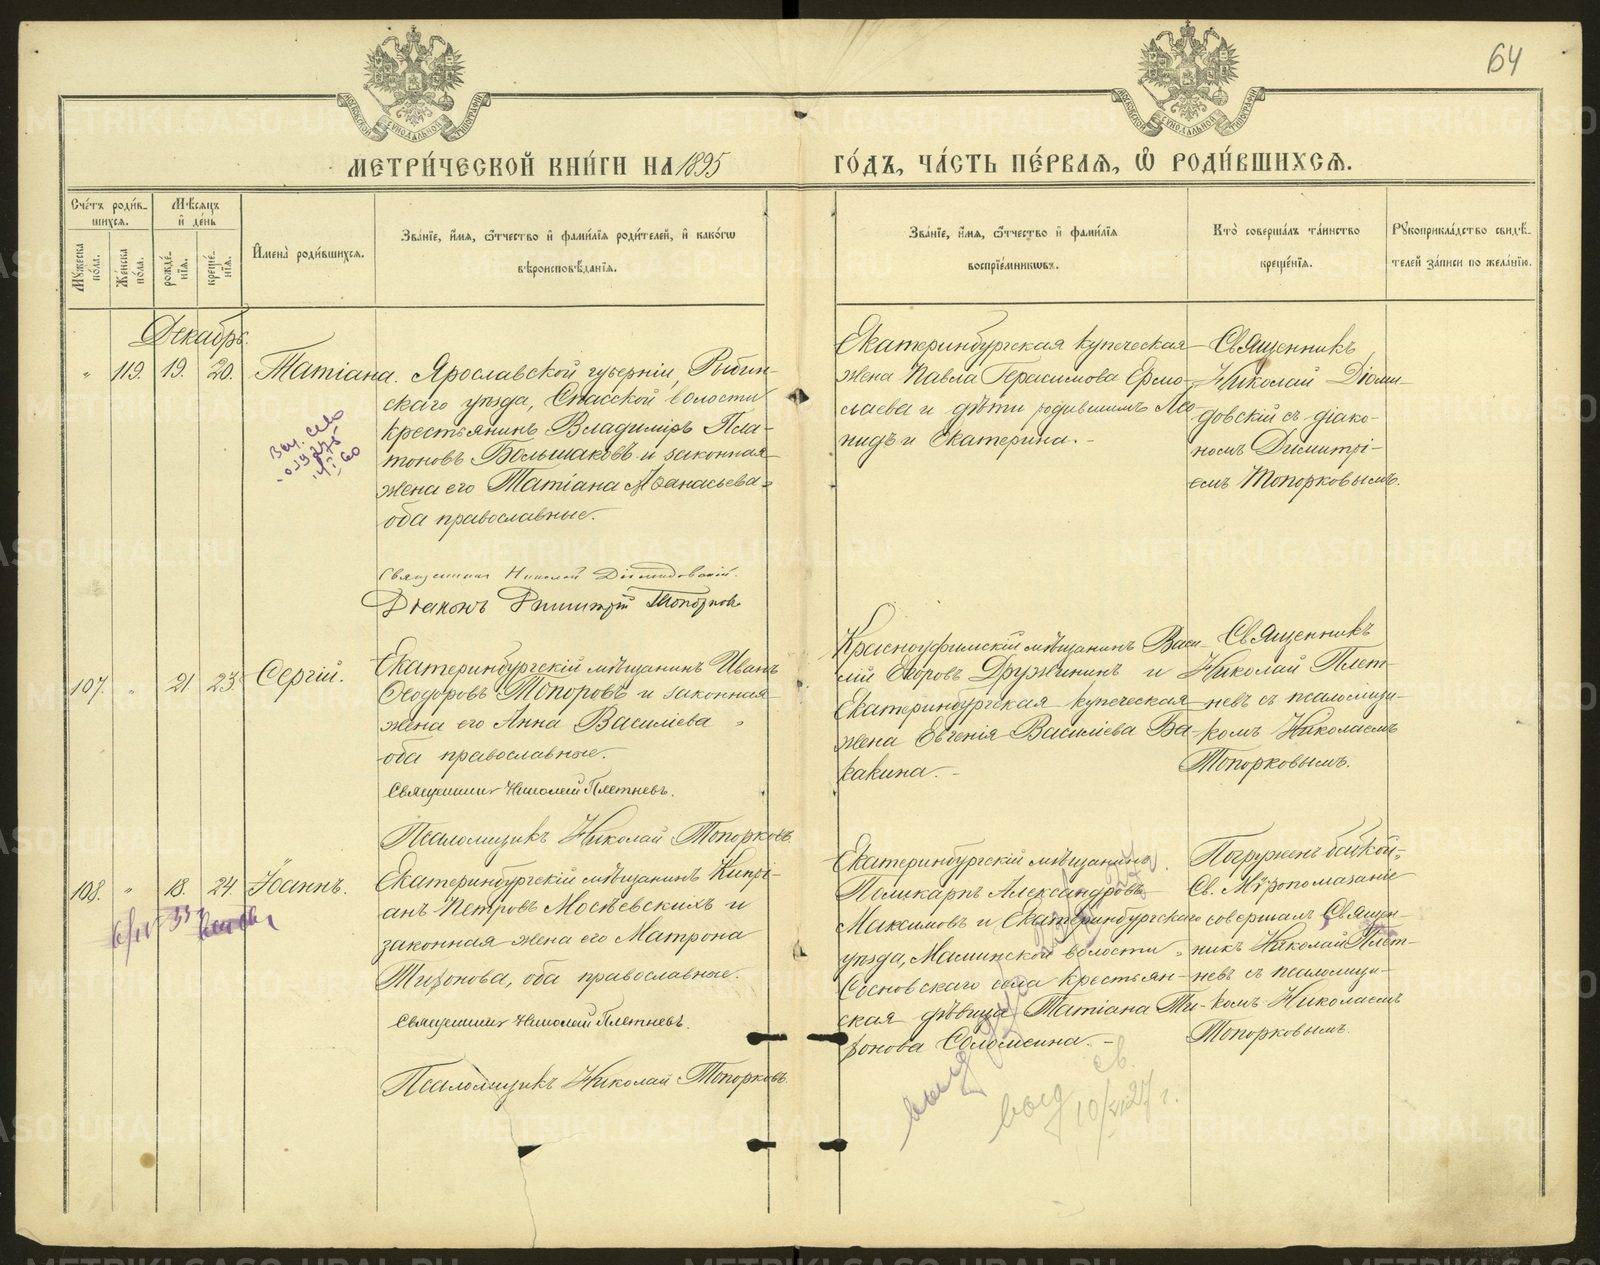 64
МЕТРИ́ЧЕСКОЙ КНИ́ГИ НА 1895 ГО́ДЪ, ЧА́СТЬ ПЕ́РВАЯ, Ѡ҆ РОДИ́ВШИХСѦ.
Сче́тъ роди́в-
шихся.
Мѣ́сяцъ
и҆ де́нь
Му́жеска
по́ла.
Же́нска
по́ла.
рожде́-
нїя.
креще́-
нїя.
И҆мена̀ роди́вшихся.
Зва́нїе, и҆́мя, ѻ҆́тчество и҆ фами́лїя роди́телей, и҆ како́гѡ
вѣроисповѣ́данїя.
Зва́нїе, и҆́мя, ѻ҆́тчество и҆ фами́лїя
воспрїе́мникѡвъ.
Кто̀ соверша́лъ та́инство
креще́нїя.
Рꙋкоприкла́дство свидѣ́-
телей за́писи по жела́нїю.
Декабрь.
" 119. 19. 20. Татіана.
Ярославской губерніи, Рыбин-
скаго уѣзда, Спасской волости
крестьянинъ Владиміръ Пла-
тоновъ Большаковъ и законная
жена его Татіана Аѳанасьева,
оба православные.
Священникъ Николай Діомидовскій.
Діаконъ Димитрій Топорковъ
Екатеринбургская купеческая
жена Павла Герасимова Ермо-
лаева и дѣти родившимъ Лео-
нидъ и Екатерина. -
Священникъ
Николай Діоми-
довскій съ діако-
номъ Димитрі-
емъ Топорковымъ.
107. " 21 23 Сергій.
Екатеринбургскій мѣщанинъ Иванъ
Ѳеодоровъ Топоровъ и законная
жена его Анна Василіева
оба православные.
Священникъ Николай Плетневъ.
Псаломщикъ Николай Топорковъ.
Красноуфимскій мѣщанинъ Васи-
лій Егоровъ Дружининъ и
Екатеринбургская купеческая
жена Евгенія Василіева Ба-
бакина. -
Священникъ
Николай Плет-
невъ съ псаломщи-
комъ Николаемъ
Топорковымъ.
108. " 18. 24. Іоаннъ.
Екатеринбургскій мѣщанинъ Кипрі-
анъ Петровъ Мосѣевскихъ и
законная жена его Матрона
Тифонова, оба православные.
Священникъ Николай Плетневъ.
Псаломщикъ Николай Топорковъ
Екатеринбургскій мѣщанинъ
Поликарпъ Александровъ
Максимовъ и Екатеринбургскаго
уѣзда, Маминской волости
Сосновскаго села крестьян-
ская дѣвица Татіана Ти-
фонова Соломеина. -
Погруженъ бабкой,
Св. Мѵропомазаніе
совершалъ Священ-
никъ Николай Плет-
невъ съ псаломщи-
комъ Николаемъ
Топорковымъ.
выд
св.
выд 10/VI 27 г.
METRIKI.GASO-URAL.RU